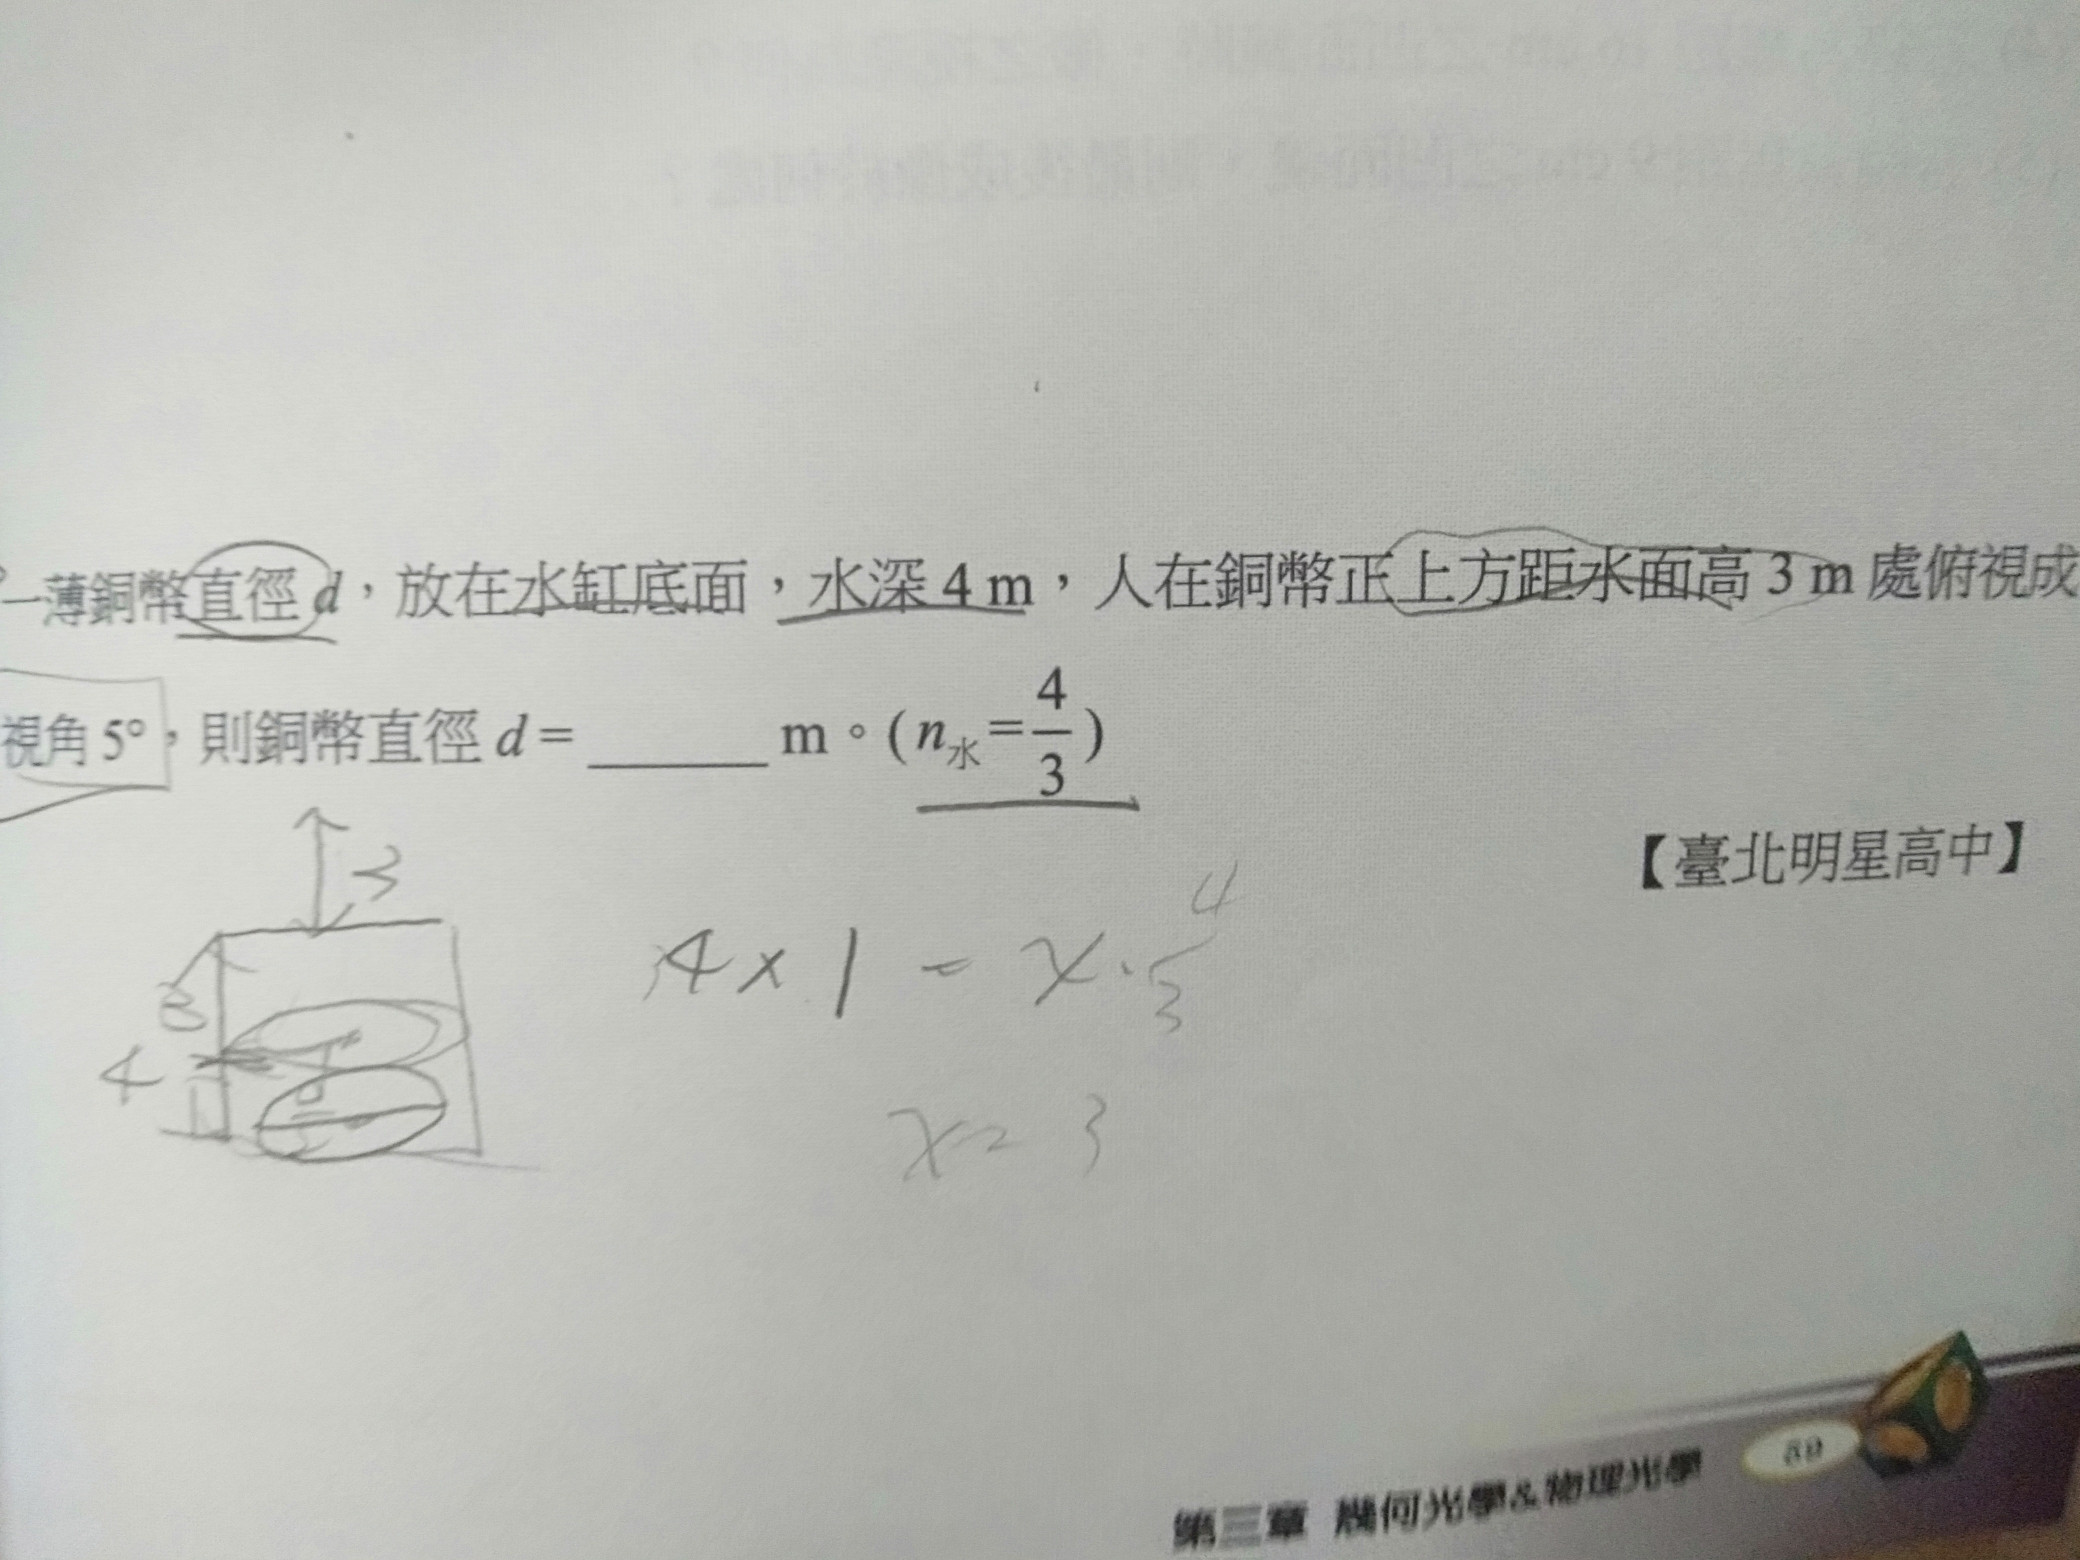 一薄銅幣直徑 d，放在水缸底面，水深 4 m，人在銅幣正上方距水面高 3 m 處俯視成
視角 5°，則銅幣直徑 d = ______ m。( n水 = 4/3 )
【臺北明星高中】
3
4 × 1 = x · 4/3
3
4
1
x = 3
第三章 幾何光學&物理光學 59